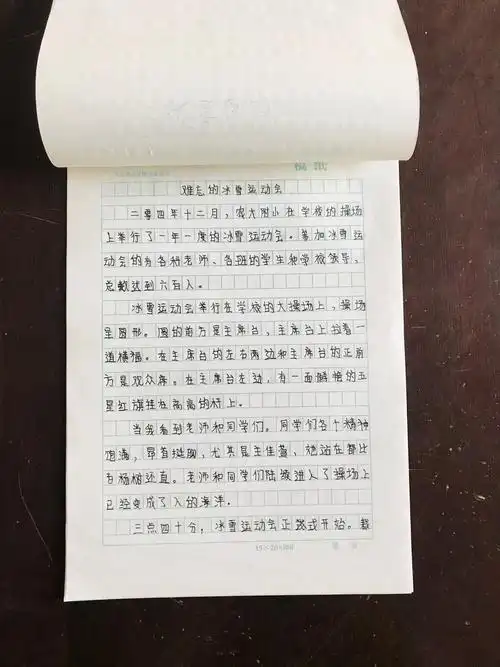 稿纸
难忘的冰雪运动会
二零四年十二月，农大附小在学校的操场
上举行了一年一度的冰雪运动会。参加冰雪运
动会的有各科老师、各班的学生和学校领导，
总数达到六百人。
冰雪运动会举行在学校的大操场上，操场
呈圆形。圆的前方是主席台，主席台上拉着一
道横幅。在主席台的左右两边和主席台的正前
方是观众席。在主席台左边，有一面鲜艳的五
星红旗挂在高高的杆上。
当我看到老师和同学们。同学们各个精神
饱满，昂首挺胸，尤其是王佳萱，她站在那比
白杨树还直。老师和同学们陆续进入了操场上
已经变成了人的海洋。
三点四十分，冰雪运动会正式开始。裁
15×20=300